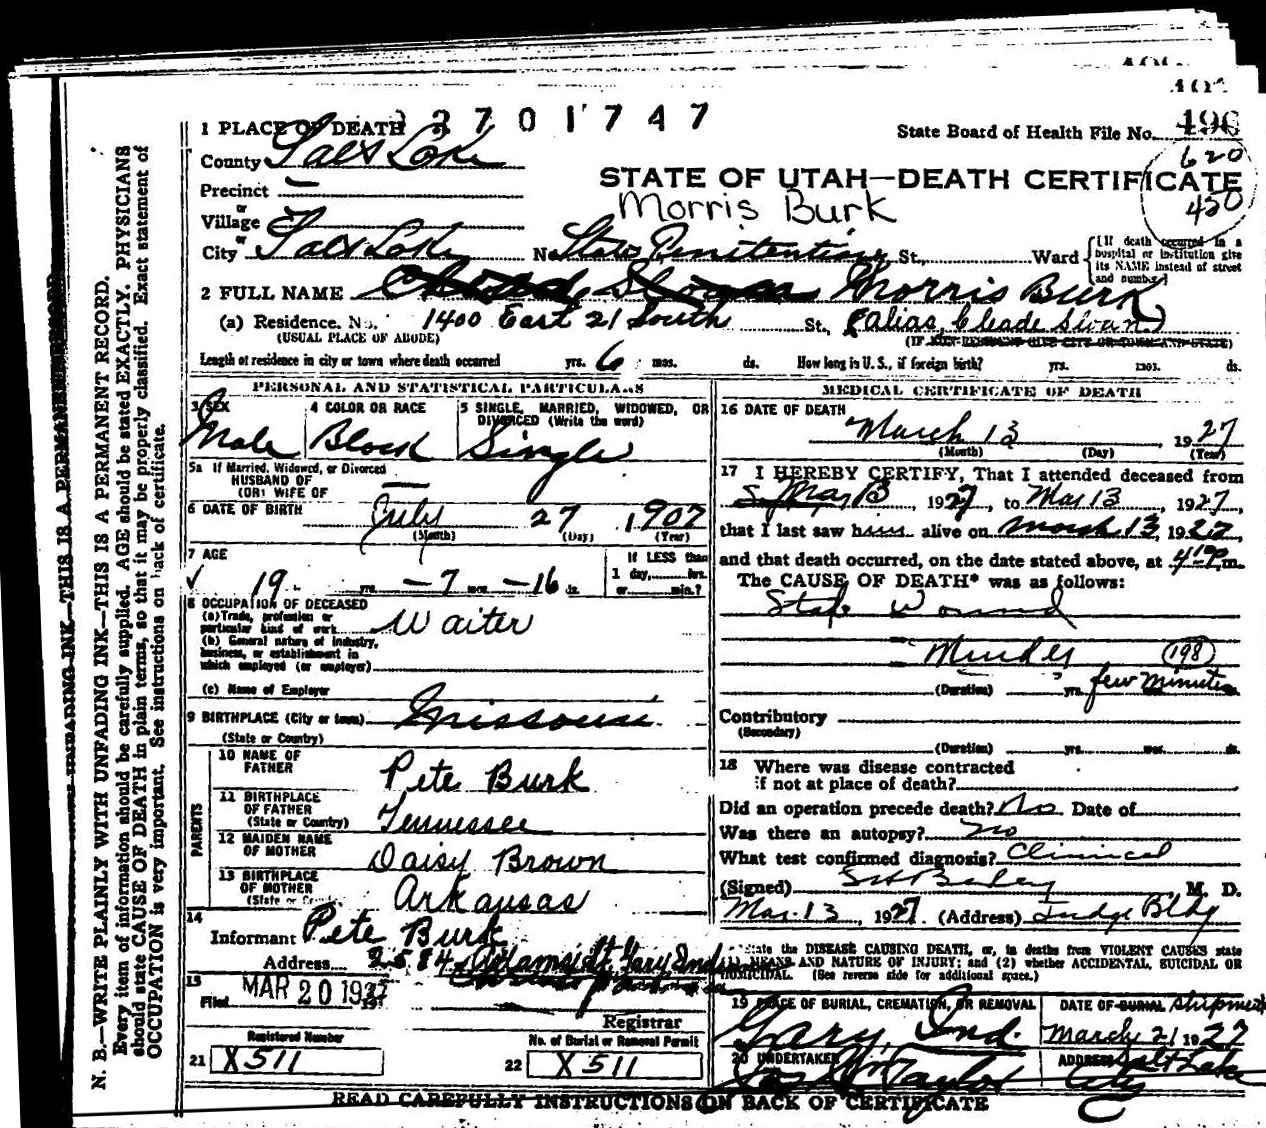 2701747
1 PLACE OF DEATH
State Board of Health File No. 496
County Salt Lake
620
450
STATE OF UTAH—DEATH CERTIFICATE
Precinct —
Morris Burk
or
Village
or
City Salt Lake No. State Penitentiary St., Ward
(If death occurred in a hospital or institution give its NAME instead of street and number)
2 FULL NAME Morris Burk
(a) Residence. No. 1400 East 21 South St., (alias, Cleade Sloan)
(USUAL PLACE OF ABODE)
Length of residence in city or town where death occurred yrs. 6 mos. ds. How long in U.S., if foreign birth? yrs. mos. ds.
PERSONAL AND STATISTICAL PARTICULARS
3 SEX
Male
4 COLOR OR RACE
Black
5 SINGLE, MARRIED, WIDOWED, OR DIVORCED (Write the word)
Single
5a If Married, Widowed, or Divorced
HUSBAND OF
(OR) WIFE OF —
6 DATE OF BIRTH July 27 1907
(Month) (Day) (Year)
7 AGE
19 yrs. —7 mos. —16 ds.
If LESS than
1 day,......hrs.
or......min.?
8 OCCUPATION OF DECEASED
(a) Trade, profession or
particular kind of work Waiter
(b) General nature of Industry,
business, or establishment in
which employed (or employer)
(c) Name of Employer
9 BIRTHPLACE (City or town) Missouri
(State or Country)
PARENTS
10 NAME OF
FATHER Pete Burk
11 BIRTHPLACE
OF FATHER
(State or Country) Tennessee
12 MAIDEN NAME
OF MOTHER Daisy Brown
13 BIRTHPLACE
OF MOTHER Arkansas
14
Informant Pete Burk
Address 2584 Adams St, Gary Ind
15
Filed MAR 20 1927
Registrar
Registered Number
21 X511
No. of Burial or Removal Permit
22 X511
MEDICAL CERTIFICATE OF DEATH
16 DATE OF DEATH
March 13 1927
(Month) (Day) (Year)
17 I HEREBY CERTIFY, That I attended deceased from
Mar 13, 1927, to Mar 13, 1927,
that I last saw him alive on March 13, 1927,
and that death occurred, on the date stated above, at m.
The CAUSE OF DEATH* was as follows:
Stab Wound
Murder (198)
(Duration) yrs. few minutes
Contributory
(Secondary)
(Duration) yrs. mos. ds.
18 Where was disease contracted
if not at place of death?
Did an operation precede death? No Date of
Was there an autopsy? No
What test confirmed diagnosis? Clinical
(Signed) M. D.
Mar. 13, 1927. (Address) Judge Bldg
*State the DISEASE CAUSING DEATH, or, in deaths from VIOLENT CAUSES state
(1) MEANS AND NATURE OF INJURY; and (2) whether ACCIDENTAL, SUICIDAL OR
HOMICIDAL. (See reverse side for additional space.)
19 PLACE OF BURIAL, CREMATION, OR REMOVAL
Gary, Ind.
DATE OF BURIAL shipment
March 21 1927
20 UNDERTAKER
Taylor
ADDRESS Salt Lake
City
READ CAREFULLY INSTRUCTIONS ON BACK OF CERTIFICATE
N. B.—WRITE PLAINLY WITH UNFADING INK—THIS IS A PERMANENT RECORD.
Every item of information should be carefully supplied. AGE should be stated EXACTLY. PHYSICIANS
should state CAUSE OF DEATH in plain terms, so that it may be properly classified. Exact statement of
OCCUPATION is very important. See instructions on back of certificate.